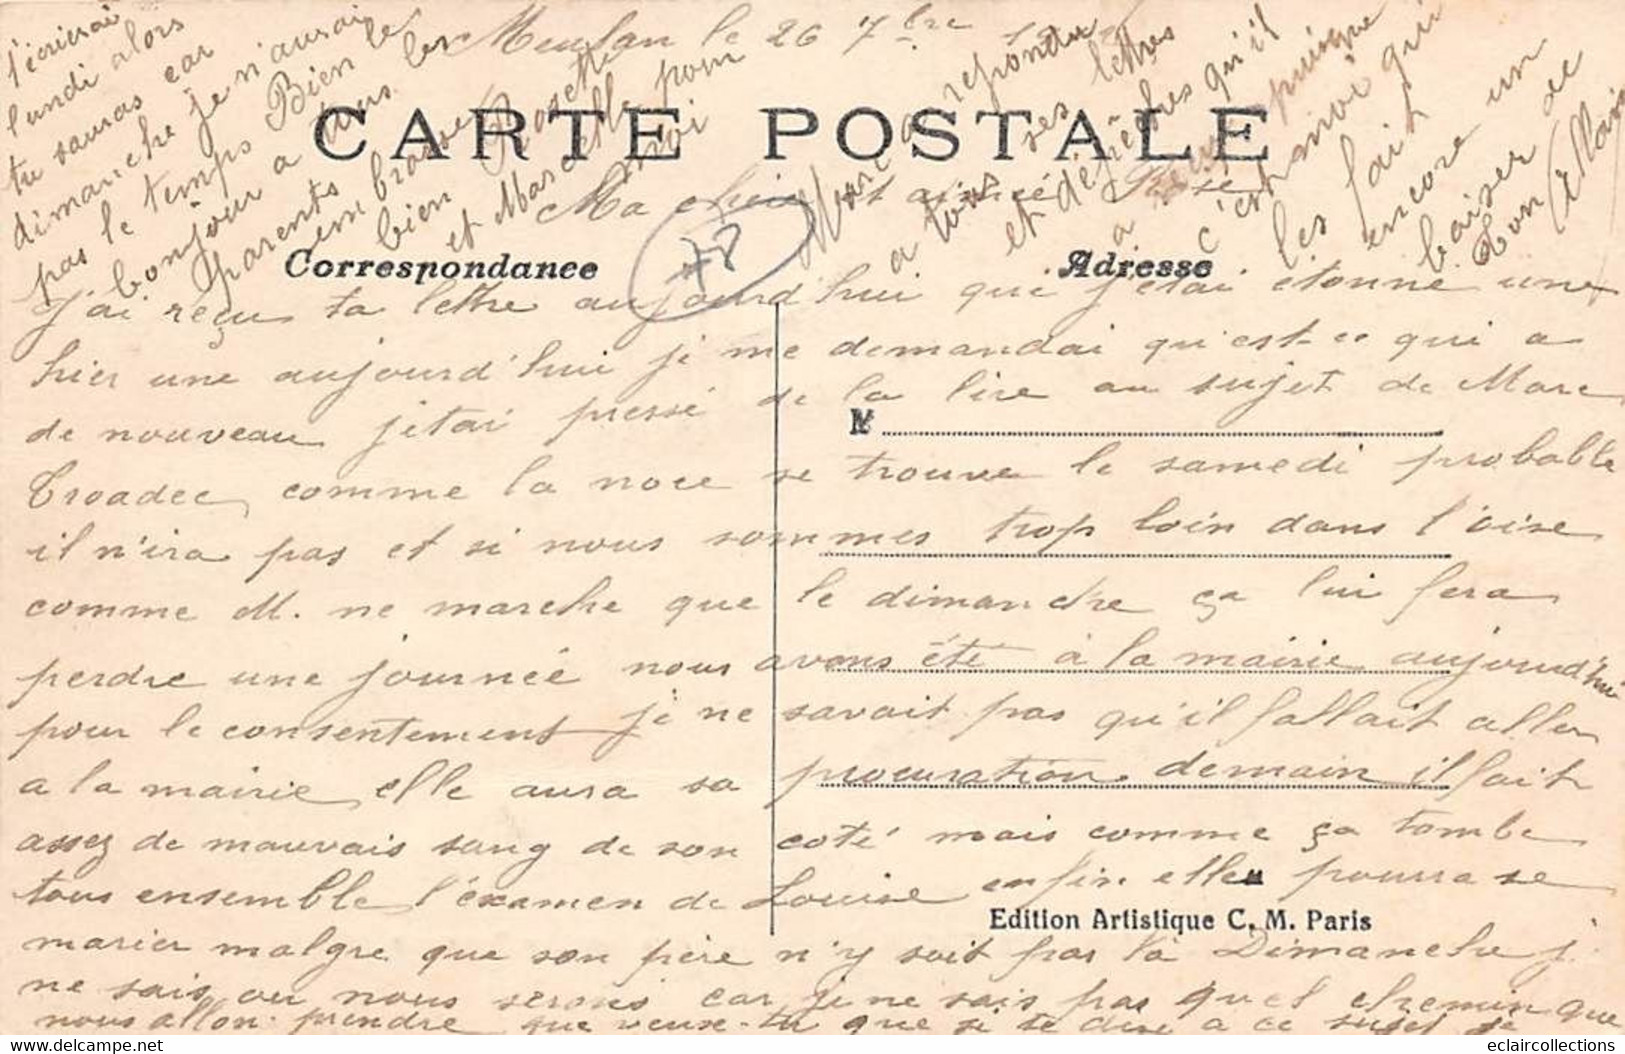 Meulan le 26 7bre
CARTE POSTALE
Ma chère et aimée
Correspondance
Adresse
J'ai reçu ta lettre aujourd'hui que j'étai étonné une
hier une aujourd'hui je me demandai qu'est-ce qui a
de nouveau j'etai pressé de la lire au sujet de Marc
M
Troadec, comme la noce se trouve le samedi probable
il n'ira pas et si nous sommes trop loin dans l'oise
comme M. ne marche que le dimanche ça lui fera
perdre une journée nous avons été à la mairie aujourd'hui
pour le consentement je ne savait pas qu'il fallait aller
a la mairie elle aura sa procuration demain il fait
assez de mauvais sang de son coté mais comme ça tombe
tous ensemble l'examen de Louise enfin elle pourra se
Edition Artistique C. M. Paris
marier malgre que son père n'y soit pas là Dimanche j.
ne sais ou nous serons car je ne sais pas quel chemin que
nous allon prendre que veux-tu que je te dire a ce sujet je
t'écrirai
lundi alors
tu sauras car
dimanche je n'aurai
pas le temps Bien le
bonjour a tous les
parents
embrasser
bien Rosette
et Marcelle pour
moi
Marc a repondu
a tous ses lettres
et dépêches qu'il
a puisque
c'est moi qui
les fait
encore un
baiser de
ton Allain
78
eclaircollections
www.delcampe.net
eclaircollections